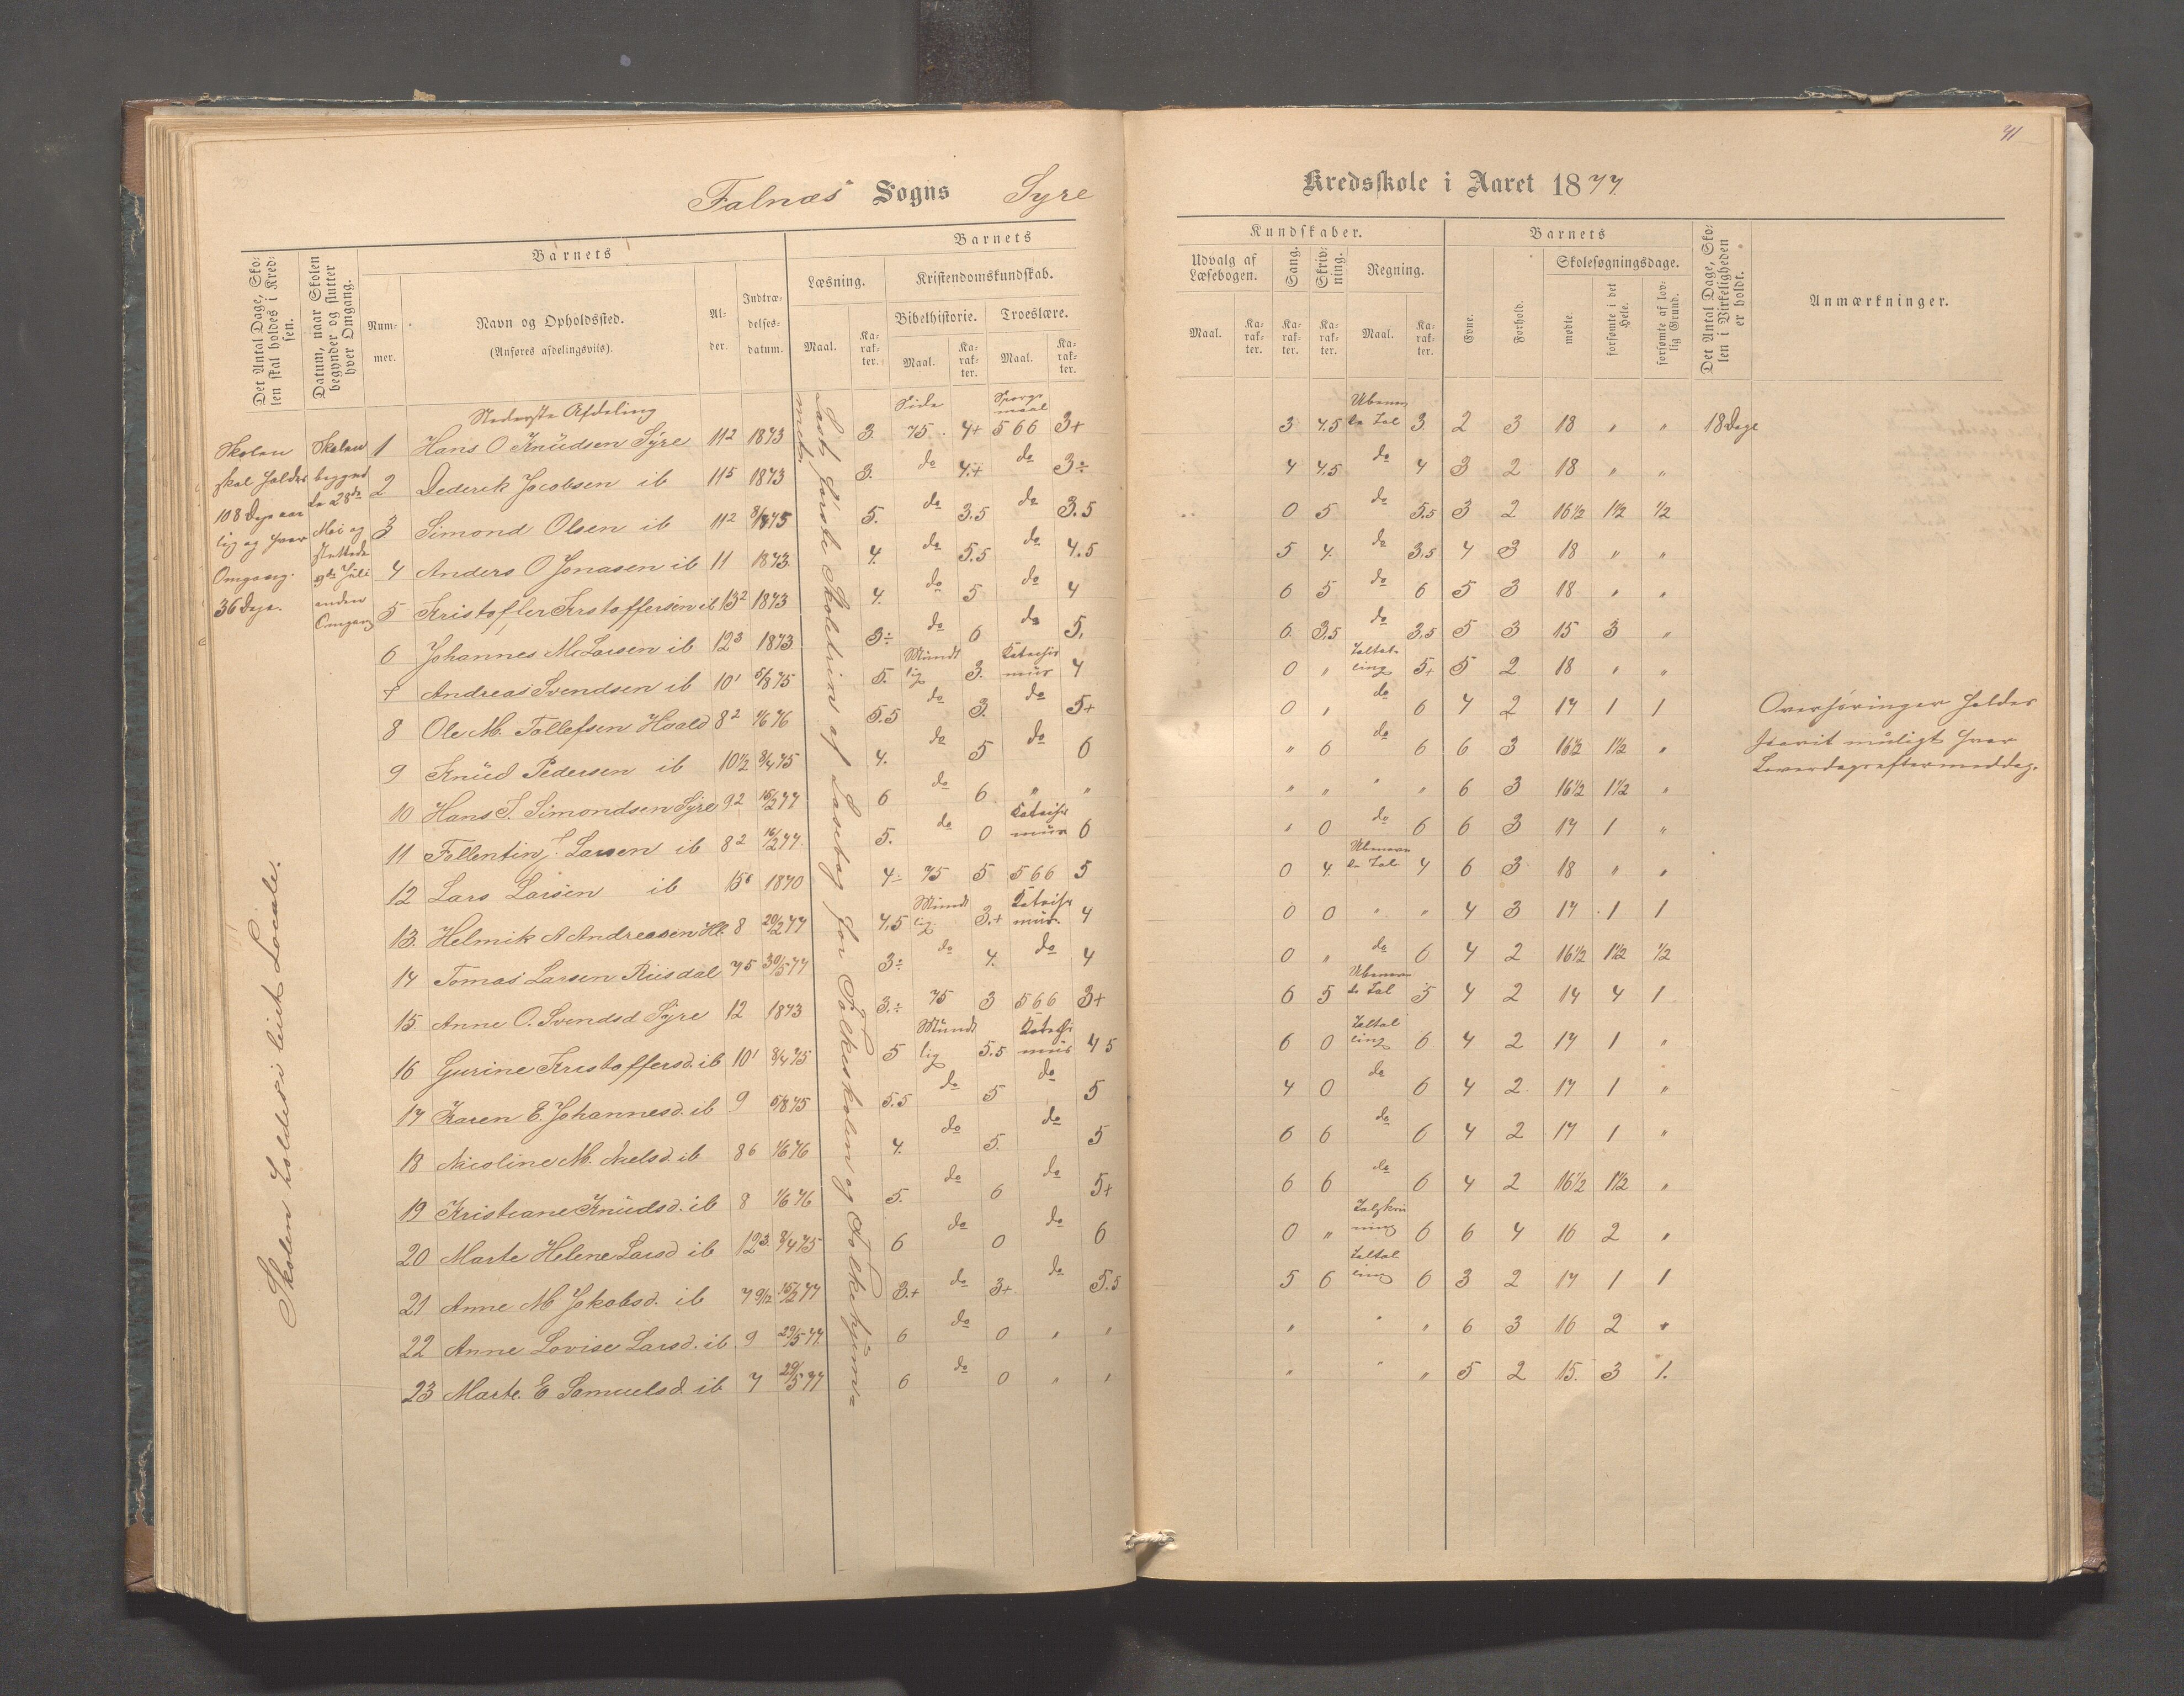 41
Falnæs Sogns Syre Kredsskole i Aaret 1877
Det Antal Dage, Skolen skal holdes i Kredsen.
Datum, naar Skolen begynder og slutter hver Omgang.
Barnets
Nummer.
Navn og Opholdssted.
(Anføres afdelingsviis).
Alder.
Indtrædelsesdatum.
Barnets
Læsning.
Maal.
Karakter.
Kristendomskundskab.
Bibelhistorie.
Troeslære.
Maal.
Karakter.
Maal.
Karakter.
Kundskaber.
Udvalg af Læsebogen.
Maal.
Karakter.
Sang.
Karakter.
Skrivning.
Karakter.
Regning.
Maal.
Karakter.
Barnets
Evne.
Forhold.
Skolesøgningsdage.
mødte
forsømte i det Hele.
forsømte af lovlig Grund.
Det Antal Dage, Skolen i Virkeligheden er holdt.
Anmærkninger.
Skolen skal holdes 108 Dage aarlig og hver Omgang. 36 Dage.
Skolen begyndte 28de Mai og sluttede 9de Juli anden Omgang
Skolen holdes i leiet Locale.
Læst første Skoletrin af Læsebog for Folkeskolen og Folkehjemmet
Nederste Afdeling
Side
Spørgsmaal
1 Hans O Knüdsen Syre 11 2 1873 3. 75 4+ 566 3+ 3 4.5 Ubenevnte Tal 3. 2 3 18 " " 18 Dage
2 Dederik Jacobsen ib 11 5 1873 3. do 4.+ do 3÷ 4 4.5 do 4 3 2 18 " "
3 Simond Olsen ib 11 2 8/1 75 5. do 3.5 do 3.5 0 5 do 5.5 3 2 16 1/2 1 1/2 1/2
4 Anders O Jonasen ib 11 1873 4. do 5.5 do 4.5 5 4. do 3.5 4 3 18 " "
5 Kristofler Krstoffersen ib 13 2 1873 4. do 5 do 4 6 5 do 6 5 3 18 " "
6 Johannes M Larsen ib 12 3 1873 3÷ do 6 do 5. 6. 3.5 do 3.5 5 3 15 3 "
7 Andreas Svendsen ib 10 1 5/8 75 5. Mündtlig 3. Katechismus 4 0 " Taltalling 5+ 5 2 18 " "
8 Ole M. Tollefsen Haald 8 2 1/6 76 5.5 do 3. do 5+ 0 " do 6 4 2 17 1 1
9 Knüd Pedersen ib 10 1/2 8/4 75 4. do 5 do 6 " 6 do 6 6 3 16 1/2 1 1/2 "
10 Hans S. Simondsen Syre 9 2 15/2 77 6 do 6 " " " " " " 6 3 16 1/2 1 1/2 "
11 Follentin J. Larsen ib 8 2 16/2 77 5. do 0 Katechismus 6 " 0 do 6 6 3 17 1 "
12 Lars Larsen ib 15 1870 4÷ 75 5 566 5 0 4. Ubenevnte Tal 4 6 3 18 " "
13. Helmik A Andreasen Hl. 8 20/2 77 4.5 Mündtlig 3.+ Katechismus 4 0 0 " " 4 3 17 1 1
14 Tomas Larsen Risdal 7 5 30/5 77 3÷ do 4. do 4 0 " do 6 4 2 16 1/2 1 1/2 1/2
15. Anne O. Svendsd Syre 12 1873 3.÷ 75 3 566 3+ 6 5 Ubenevnte Tal 5 4 2 14 4 1
16 Gurine Kristoffersd. ib 10 1 8/4 75 5 Mündtlig 5.5 Katechismus 4 5 6 0 Taltalling 6 4 2 17 1 "
17 Karen E. Johannesd. ib 9 5/8 75 5.5 do 5 do 5 4 0 do 6 4 2 17 1 "
18 Nicoline M. Nielsd. ib 8 6 1/6 76 4. do 5. do 5 6 6 do 6 4 2 17 1 "
19 Kristiane Knüdsd. ib 8 1/6 76 5. do 6 do 5+ 6 6 do 6 4 2 16 1/2 1 1/2 "
20 Marte Helene Larsd ib 12 3. 8/4 75 6 do 0 do 6 0 " Talskrivning 6 6 4 16 2 "
21 Anne M Jakobsd. ib 7 9/12 15/2 77 3.+ do 3+ do 5.5 5 6 Taltalling 6 3 2 17 1 1
22 Anne Lovise Larsd. ib. 9 29/5 77 6 do 0 " " " " " 6 3 16 2 "
23 Marte. E Samuelsd. ib 7 29/5 77 6 do 0 " " " " " 5 2 15. 3 1.
Overhøringer holdes
saavit müligt hver
Løverdagseftermeddag.